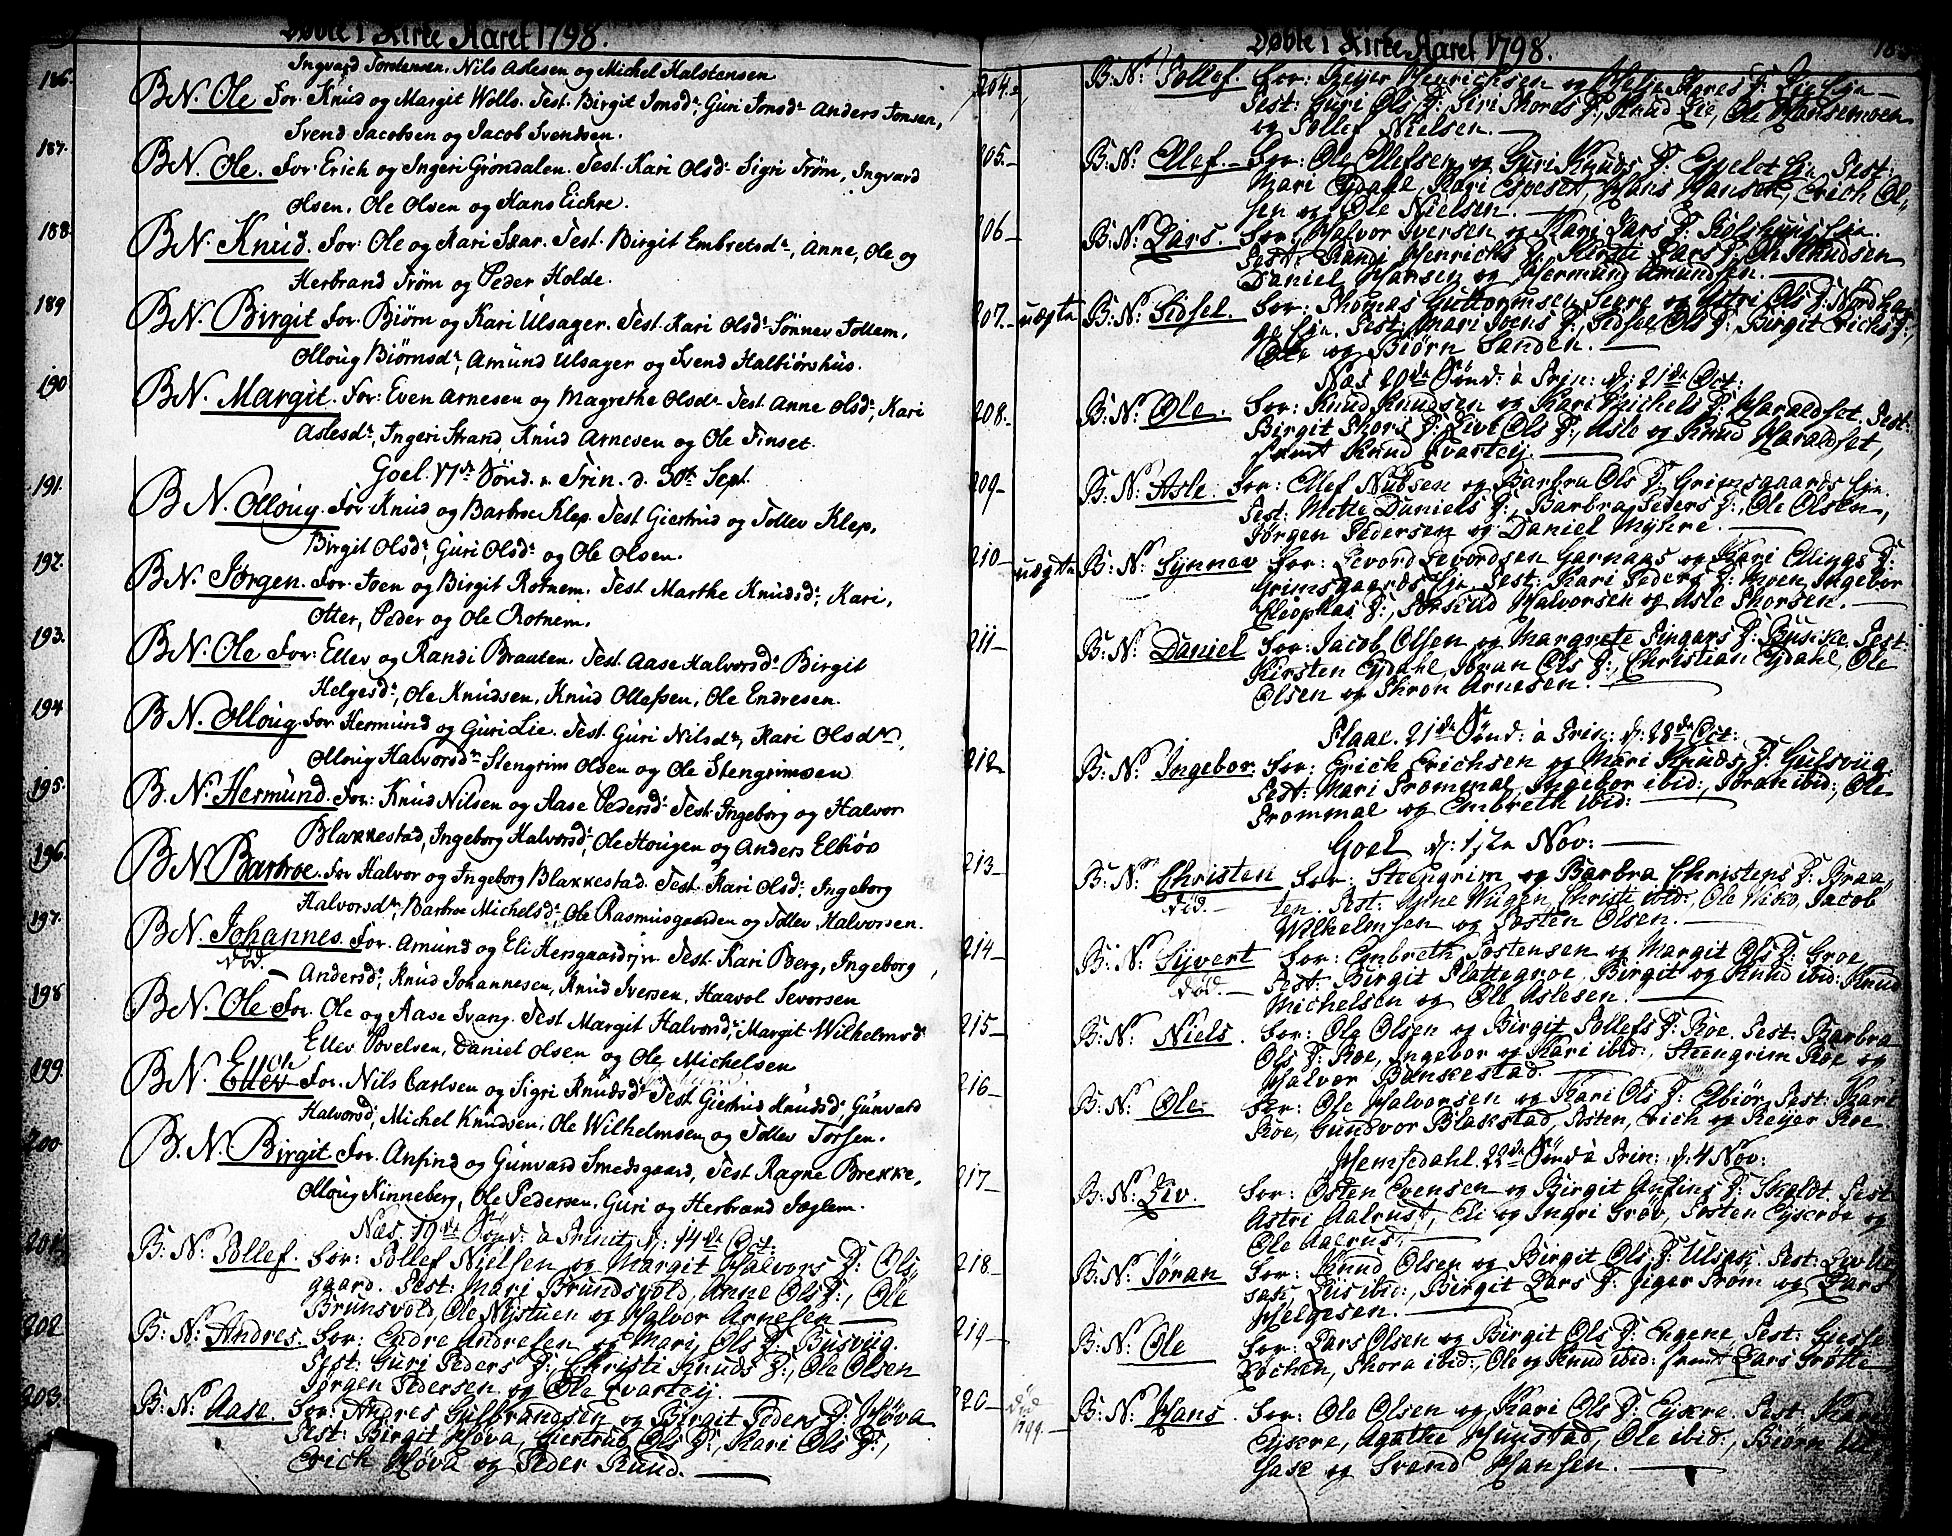 Døbte i Kirke Aaret 1798.
Ingvard Torstensen, Nils Aslesen og Michel Halstensen
186. B N. Ole For. Knud og Margit Wolls. Test. Birgit Jonsdr. Guri Jonsdr. Anders Jonsen,
Svend Jacobsen og Jacob Svendsen.
187. B N. Ole. For. Erich og Ingeri Grøndalen. Test. Kari Olsdr. Sigri Trøm, Ingvard
Olsen, Ole Olsen og Hans Eichre.
188 B N. Knud. For: Ole og Kari Skar. Test. Birgit Embretsdr., Anne, Ole og
Herbrand Trøm og Peder Holde.
189 B N. Birgit For. Biørn og Kari Ulsager. Test. Kari Olsdr. Sønnev Tollem,
Olloug Biørnsdr, Amund Ulsager og Svend Halbiørshus.
190 B N. Margit. For: Even Arnesen og Magrethe Olsdr. Test. Anne Olsdr, Kari
Aslesdr, Ingeri Strand, Knud Arnesen og Ole Finset.
Goel. 17de Sønd. a Trin. d. 30te Sept.
191. B N. Olloug. For Knud og Barbroe Klep. Test Giertrud og Tollev Klep,
Birgit Olsdr, Guri Olsdr og Ole Olsen.
192. B N. Jørgen. For. Joen og Birgit Rotnem. Test Marthe Knudsdr, Kari,
Otter, Peder og Ole Rotnem.
193. B N. Ole For: Ellev og Randi Braaten. Test. Aase Halvorsdr Birgit
Helgesdr, Ole Knudsen, Knud Ollefsen, Ole Endresen.
194 B N. Olloug. For Hermund og Guri Lie. Test. Guri Nilsdr, Kari Olsdr,
Olloug Halvorsdr Stengrim Olsen og Ole Stengrimsen
195. B. N. Hermund. For: Knud Nilsen og Aase Pedersdr. Test. Ingeborg og Halvor
Blakkestad, Ingeborg Halvorsdr, Ole Hougen og Anders Elbiør
196. B N Barbroe. For Halvor og Ingeborg Blakkestad. Test. Kari Olsdr, Ingeborg
Halvorsdr, Barbroe Michelsdr, Ole Rasmusgaarden og Tollev Halvorsen.
197. B N. Johannes. For. Amund og Eli Hersgaard. Test. Kari Berg, Ingeborg,
død.
Andersdr, Knud Johannesen, Knud Iversen, Haavol Sevorsen
198 B N. Ole For. Ole og Aase Svang. Test Margit Halvorsdr, Margit Wilhelmsdr
Ellev Povelsen, Daniel Olsen og Ole Michelsen
199. B N. Ellev For. Nils Carlsen og Sigri Knudsdr Test Giertrud Knudsdr Gunvard
Halvorsd, Michel Knudsen, Ole Wilhelmsen og Tollev Torsen.
200 B. N. Birgit For. Anfind og Gunvard Smedsgaard, Test Ragne Brekke,
Olloug Kinneberg, Ole Pedersen, Guri og Herbrand Jæglem.
Næs. 19de Sønd: à Trinit: d: 14de Oct:
201. B: N: Tollef. For: Tollef Nielsen og Margit Halvors D: Oli
gaard. Test: Mari Brundsvold, Anne Ols D:, Ole
Brunsvold, Ole Nystuen og Halvor Arnesen.
202 B: N: Andres. For: Endre Andresen og Mari Ols D: Busvug.
Test: Guri Peders D:, Christi Knuds D:, Ole Olsen
Jørgen Pedersen og Ole Evarteij.
203. B: N: Aase. For: Andres Gulbrandsen og Birgit Peders D: Høva
Test: Birgit Høva, Giertrud Ols D:, Kari Ols D:,
Erich Høva og Peder Ruud.
Døbte i Kirke Aaret 1798.
204. B: N: Tollef. For: Reijer Henrichsen og Kares D: Lie Eje
Test: Guri Ols D:, Siri Thores D:, Knud Lie, Ole Hansemoen
og Tollef Nielsen.
205. B: N: Ellef. For: Ole Ellefsen og Guri Knuds D: Espeset Eje Test:
Mari Eydahl, Kari Espeset, Hans Hansen, Erich Ol-
sen og Ole Nielsen.
206 B: N: Lars For: Halvor Iversen og Kari Lars D: Eje.
Test: Randi Henrichs D:, Kirsti Lars D:, Ole Knudsen
Daniel Hansen og Hermund Amundsen.
207. uægte B: N: Sidsel. For: Thomas Guttormsen og Astri Ols D: Nordha
ge Eje. Test: Mari Joens D:, Sidsel Ols D:, Birgit Erichs D:,
Ole og Biørn Sanden.
Næs 20de Sønd: à Trin: d: 21de Oct:
208. B: N: Ole. For: Knud Knudsen og Kari Michels D: Haraldset. Test:
Birgit Thors D:, Live Ols D:, Asle og Knud Haraldset,
samt Knud Evarteij.
209 B: N: Asle. For: Ellef Nubsen og Barbra Ols D: Grimsgaards Eje.
Test: Mette Daniels D:, Barbra Peders D:, Ole Olsen,
Jørgen Pedersen og Daniel Myhre.
210 uægte B: N: Synnev For: Levord Levordsen Garnaas og Kari Ellings D:
Grimsgaards Eje. Test: Kari Peders D: Moen, Ingebor
Cleophas D:, Halvorsen og Asle Thorsen.
211 B: N: Daniel For: Jacob Olsen og Margrete Ingars D: Test:
Kirsten Eydahl, Joran Ols D:, Christian Eydahl, Ole
Olsen og Thron Arnesen.
Flaae. 21de Sønd: à Trin: d: 28de Oct:
212. B: N: Ingebor. For: Erich Erichsen og Mari Knuds D: Gulsvug.
Test: Mari Trommal, Ingebor ibid:, Joran ibid:, Ole
Trommal og Embreth ibid:
Goel d: 1ste Nov:
213 B: N: Christen For: Steengrim og Barbra Christens D: Braa
død. ten. Test: Anne Wigen, Christi ibid:, Ole Wiko, Jacob
Wilhelmsen og Tosten Olsen.
214 B: N: Syvert For: Embreth Tostensen og Margit Ols D: Groe
død. Test: Birgit Plattegroe, Birgit og Knud ibid: Knud
Michelsen og Ole Aslesen.
215 B: N: Niels. For: Ole Olsen og Birgit Tollefs D: Roe. Test: Barbra
Ols D: Roe, Ingebor og Kari ibid:, Stengrim Roe og
Halvor Bankestad.
216 B: N: Ole For: Ole Halvorsen og Kari Ols D: Elbiør. Test: Kari
Roe, Gundvor Blakstad, Tosten, Erich og Reijer Roe
Hemsedahl. 22de Sønd à Trin: d: 4 Nov:
217 B: N: Liv. For: Østen Evensen og Birgit Anfins D: Skoldt. Test
Astri Aalrust, Eli og Ingri Grøv, Tosten Eyskroe og
Ole Aalrust.
218 B: N: Joran For: Knud Olsen og Birgit Ols D: Ulsak. Test: Liv Ul
sak, Lus ibid:, Birgit Lars D: Jiger Trøm og Lars
Helgesen.
219 B: N: Ole For: Lars Olsen og Birgit Ols D: Engene Test:
Løchen, Thora ibid:, Ole og Knud ibid: samt Lars Grøtte
220 død 1799. B: N: Hans. For: Ole Olsen og Kari Ols D: Eykre. Test: Kari
Eykre, Agathe Huustad, Ole ibid:, Biørn Ul
sak og Svend Hansen.